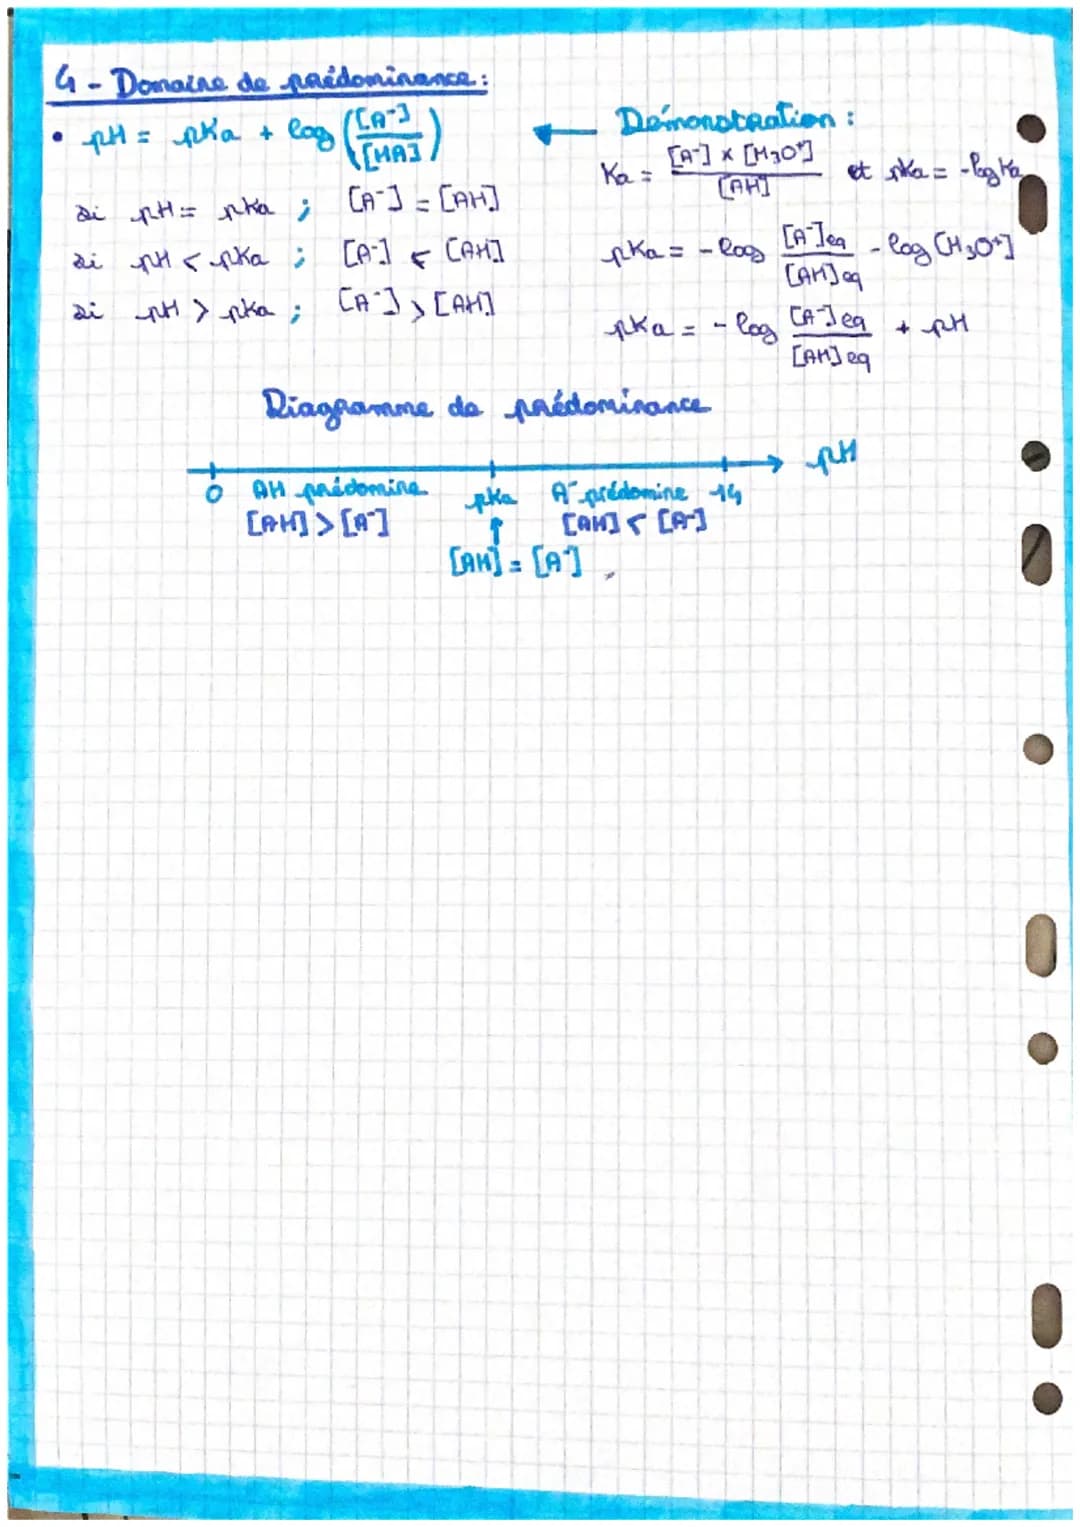 4 - Domaine de prédominance :
• pH = pKa + log ([A⁻]/[HA])
si pH = pKa ; [A⁻] = [AH]
si pH < pKa ; [A⁻] < [AH]
si pH > pKa ; [A⁻] > [AH]
← Démonstration :
Ka = [A⁻] × [H₃O⁺]/[AH] et pKa = -log Ka
pKa = - log [A⁻]eq/[AH]eq - log [H₃O⁺]
pKa = - log [A⁻]eq/[AH]eq + pH
Diagramme de prédominance
pH
0 AH prédomine pKa A⁻ prédomine 14
[AH] > [A⁻] ↑ [AH] < [A⁻]
[AH] = [A⁻]